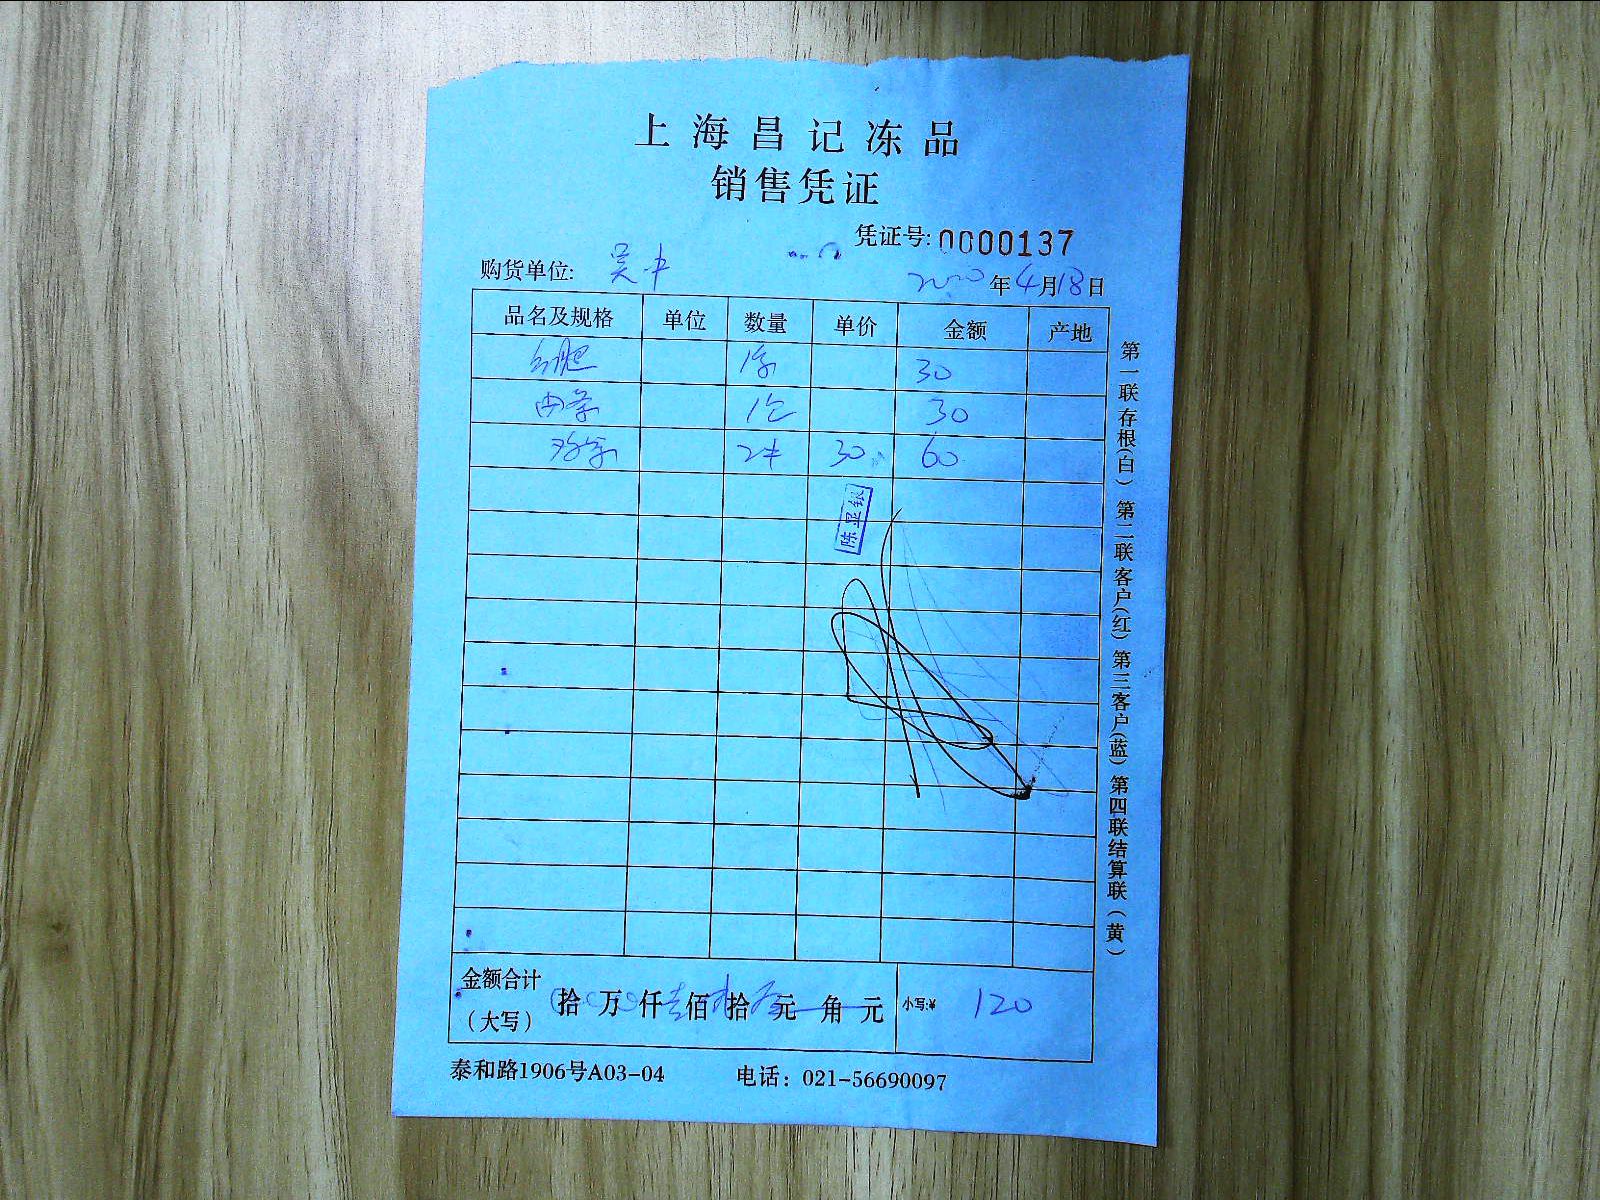 上海昌记冻品
销售凭证
凭证号: 0000137
购货单位: 吴丰
2020年4月18日
品名及规格 单位 数量 单价 金额 产地
30
30
30 60
陈显银
金额合计（大写） 拾 万 仟 佰 拾 元 角 元 小写:¥ 120
泰和路1906号A03-04 电话：021-56690097
第一联存根(白) 第二联客户(红) 第三客户(蓝) 第四联结算联(黄)